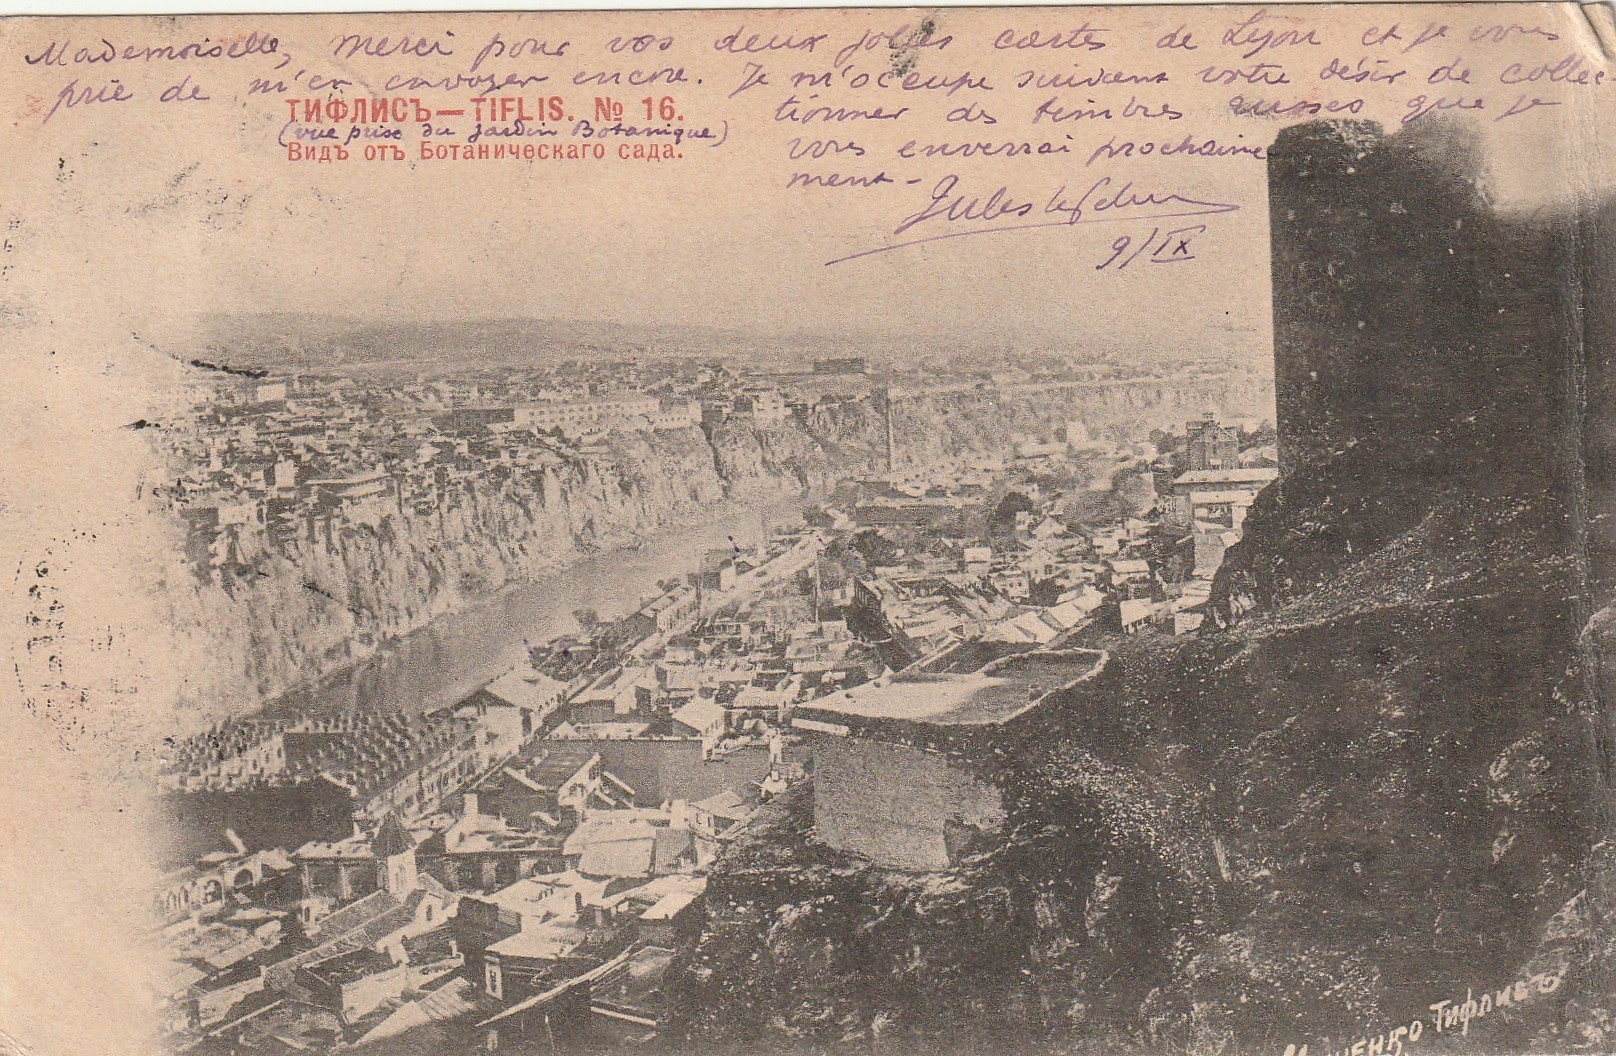 Mademoiselle, merci pour vos deux jolies cartes de Lyon et je vous
prie de m'en envoyer encore. Je m'occupe suivant votre désir de collec
tionner des timbres russes que je
vous enverrai prochaine
ment -
Jules
9/IX
ТИФЛИСЪ — TIFLIS. № 16.
(vue prise du jardin Botanique)
Видъ отъ Ботаническаго сада.
Тифлисъ